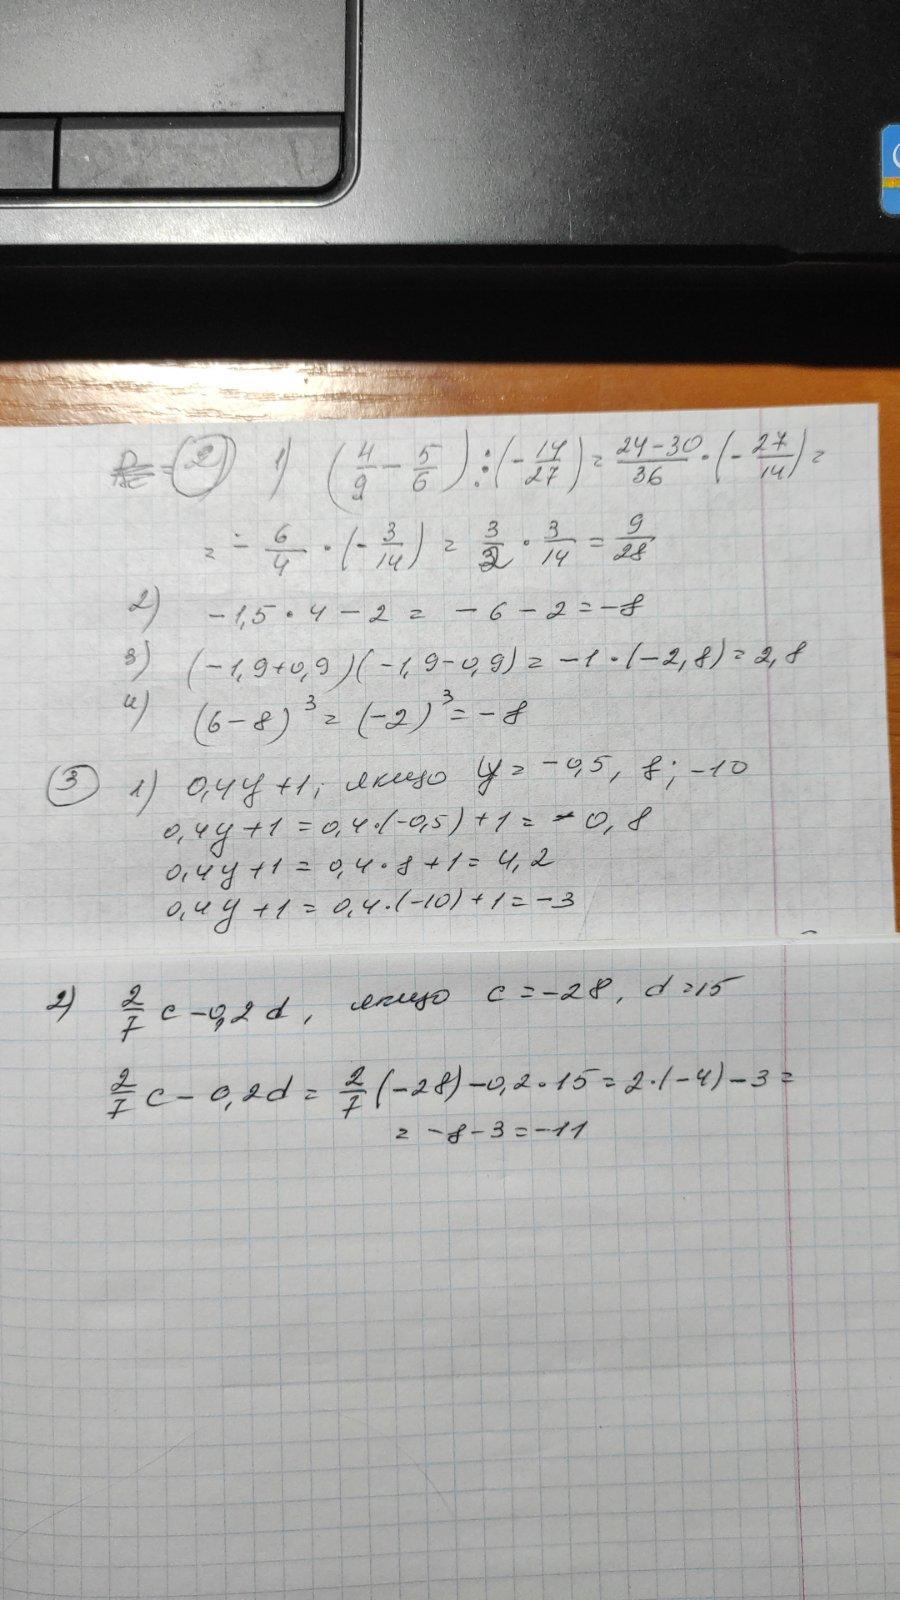 2) 1) (4/9 - 5/6) : (-14/27) = (24-30)/36 · (-27/14) =
= - 6/4 · (-3/14) = 3/2 · 3/14 = 9/28
2) -1,5 · 4 - 2 = -6 - 2 = -8
3) (-1,9+0,9)(-1,9-0,9) = -1 · (-2,8) = 2,8
4) (6-8)³ = (-2)³ = -8
3) 1) 0,4y+1; якщо y = -0,5, 8; -10
0,4y+1 = 0,4·(-0,5)+1 = 0,8
0,4y+1 = 0,4·8+1 = 4,2
0,4y+1 = 0,4·(-10)+1 = -3
2) 2/7 c - 0,2d, якщо c = -28, d = 15
2/7 c - 0,2d = 2/7 (-28) - 0,2·15 = 2·(-4) - 3 =
= -8-3 = -11